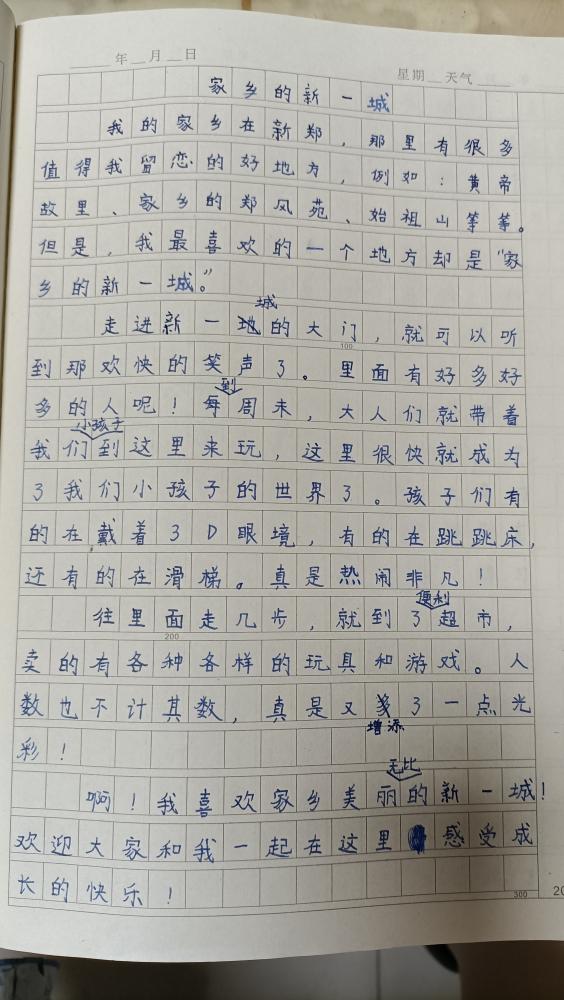 年 月 日 星期 天气
家乡的新一城
我的家乡在新郑，那里有很多
值得我留恋的好地方，例如：黄帝
故里、家乡的郑风苑、始祖山等等。
但是，我最喜欢的一个地方却是“家
乡的新一城。”
城
走进新一地的大门，就可以听
100
到那欢快的笑声了。里面有好多好
到
多的人呢！每周末，大人们就带着
小孩子
我们到这里来玩，这里很快就成为
了我们小孩子的世界了。孩子们有
的在戴着3D眼境，有的在跳跳床，
还有的在滑梯。真是热闹非凡！
便利
往里面走几步，就到了超市，
200
卖的有各种各样的玩具和游戏。人
数也不计其数，真是又多了一点光
增添
彩！
无比
啊！我喜欢家乡美丽的新一城！
欢迎大家和我一起在这里感受成
长的快乐！
300
20